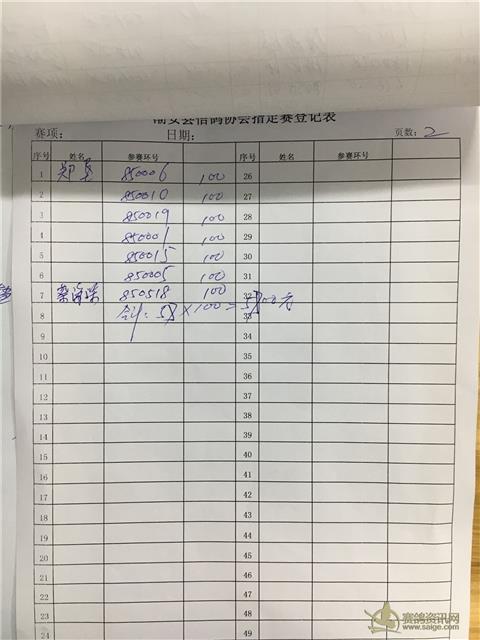 潮安县信鸽协会指定赛登记表
赛项: 日期: 页数: 2
序号 姓名 参赛环号 序号 姓名 参赛环号
1 郑 850006 100 26
2 850010 100 27
3 850019 100 28
4 850001 100 29
5 850015 100 30
6 850005 100 31
7 蔡 850518 100 32
8 合计: × 100 = 元 33
9 34
10 35
11 36
12 37
13 38
14 39
15 40
16 41
17 42
18 43
19 44
20 45
21 46
22 47
23 48
24 49
赛鸽资讯网
www.saige.com